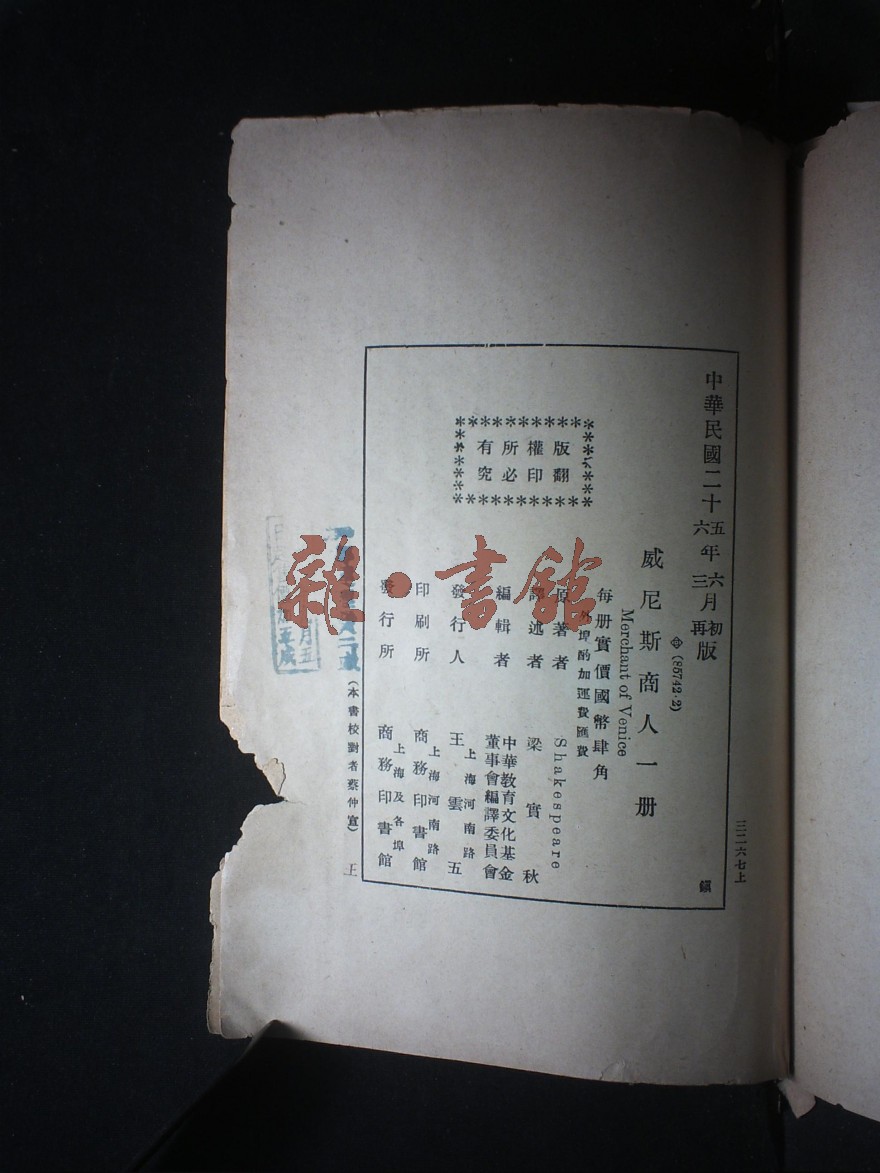 中華民國二十五年六月初版
六年三月再版
三二六七上
⊕(85742·2)
威尼斯商人一册
Merchant of Venice
每册實價國幣肆角
外埠酌加運費匯費
版權所有
翻印必究
原著者 Shakespeare
譯述者 梁實秋
編輯者 中華教育文化基金董事會編譯委員會
發行人 王雲五
上海河南路
印刷所 商務印書館
上海河南路
發行所 商務印書館
上海及各埠
(本書校對者蔡仲宣)
雜·書館